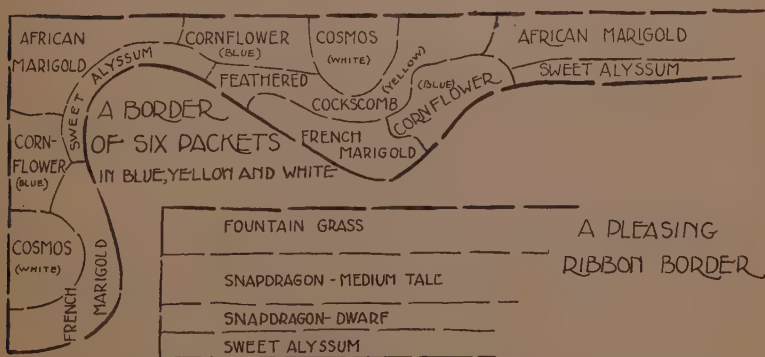 AFRICAN
MARIGOLD
SWEET ALYSSUM
CORNFLOWER
(BLUE)
COSMOS
(WHITE)
(YELLOW)
AFRICAN MARIGOLD
SWEET ALYSSUM
FEATHERED
COCKSCOMB
(BLUE)
CORNFLOWER
FRENCH
MARIGOLD
A BORDER
OF SIX PACKETS
IN BLUE, YELLOW AND WHITE
CORN-
FLOWER
(BLUE)
COSMOS
(WHITE)
FRENCH
MARIGOLD
FOUNTAIN GRASS
SNAPDRAGON - MEDIUM TALL
SNAPDRAGON - DWARF
SWEET ALYSSUM
A PLEASING
RIBBON BORDER